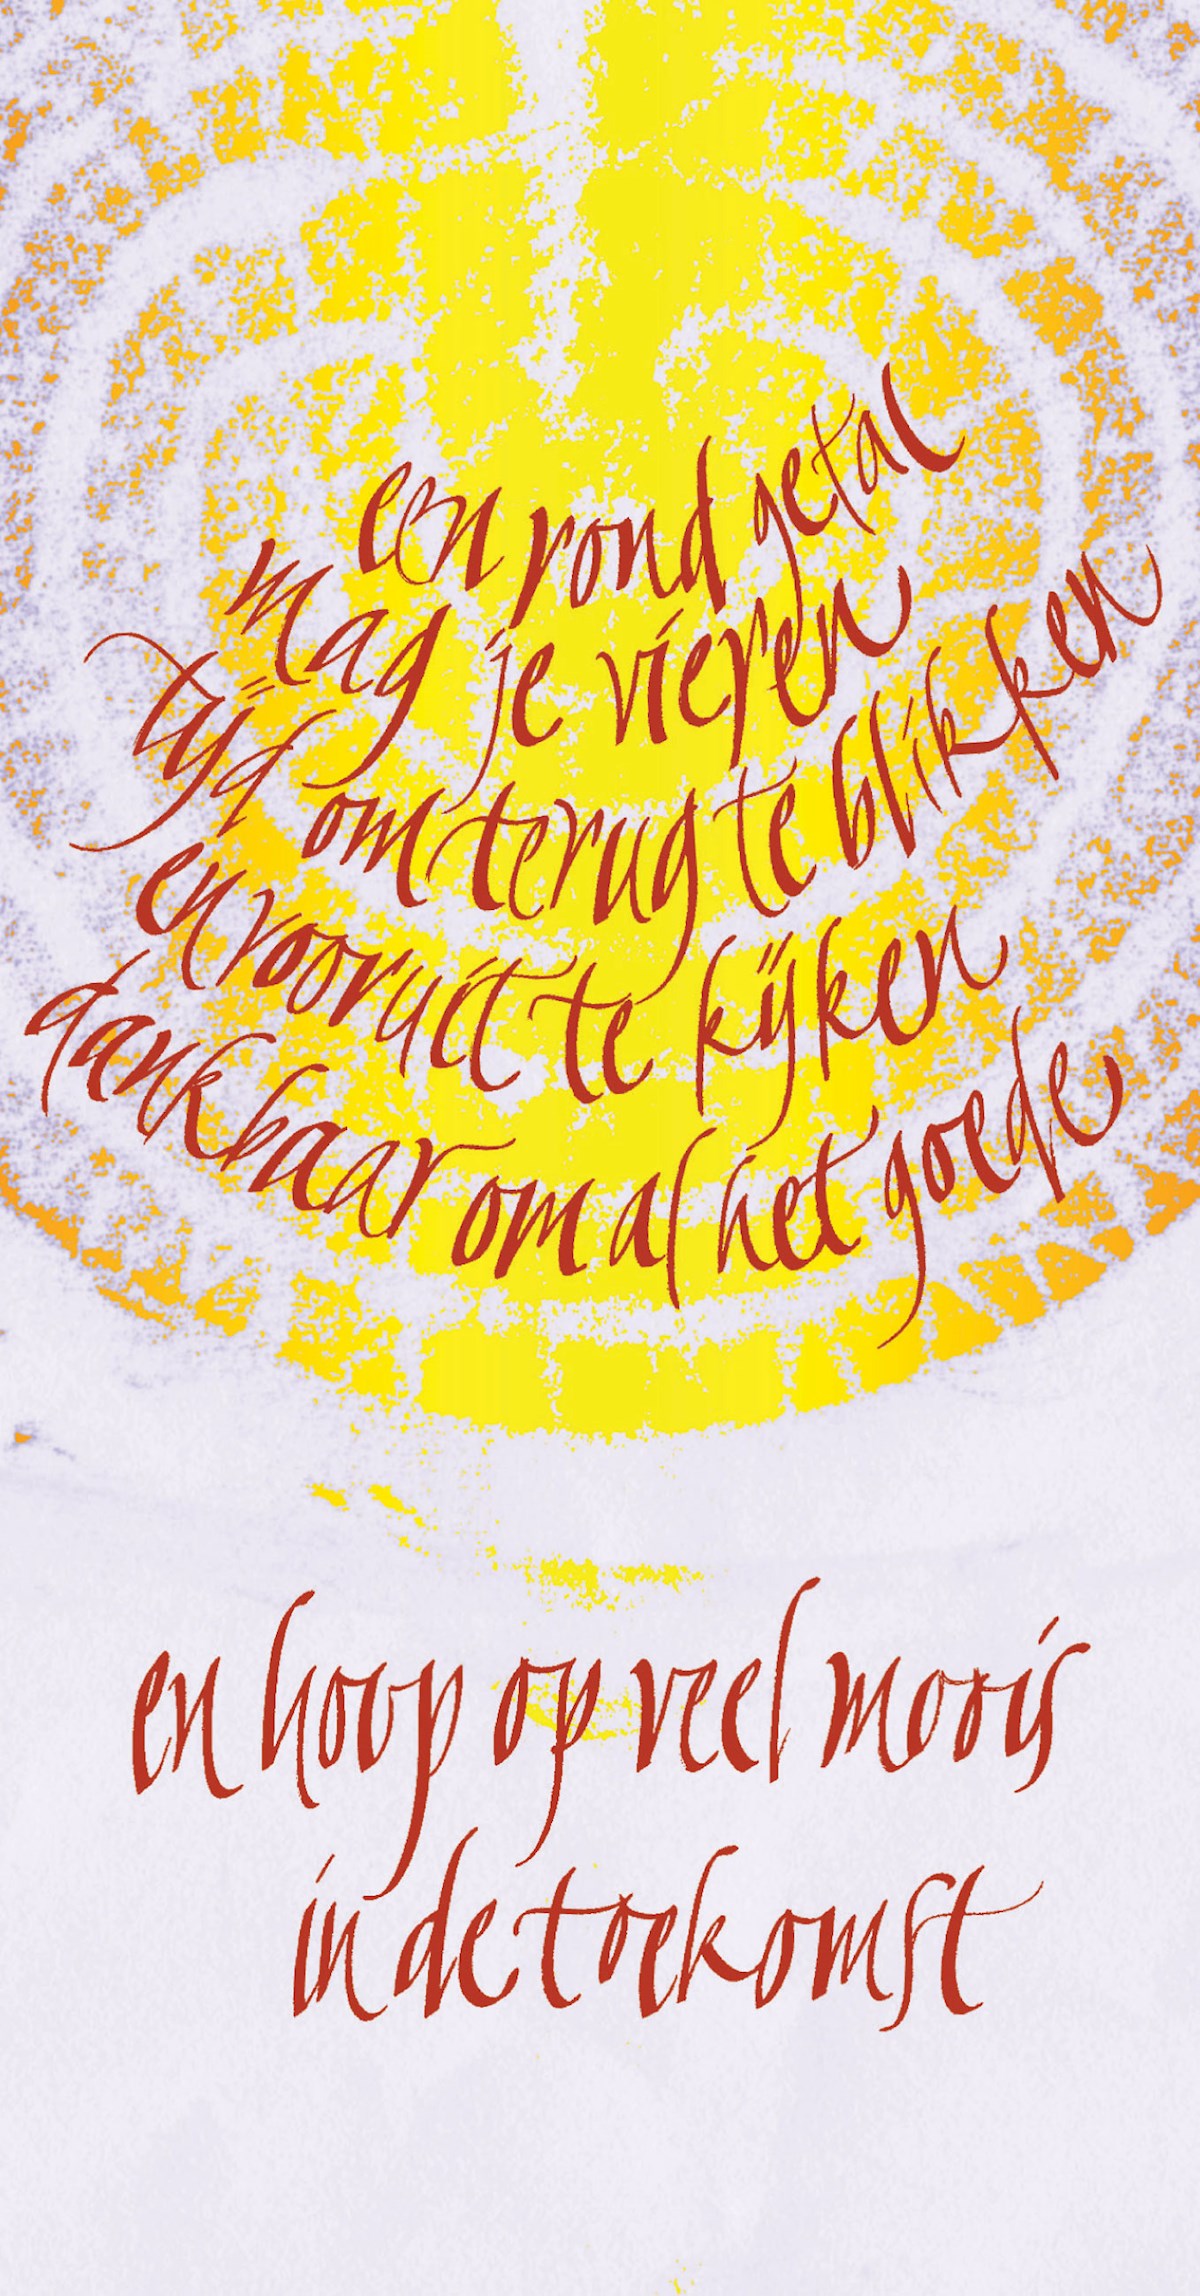 een rond getal
mag je vieren
tijd om terug te blikken
en vooruit te kijken
dankbaar om al het goede
en hoop op veel moois
in de toekomst